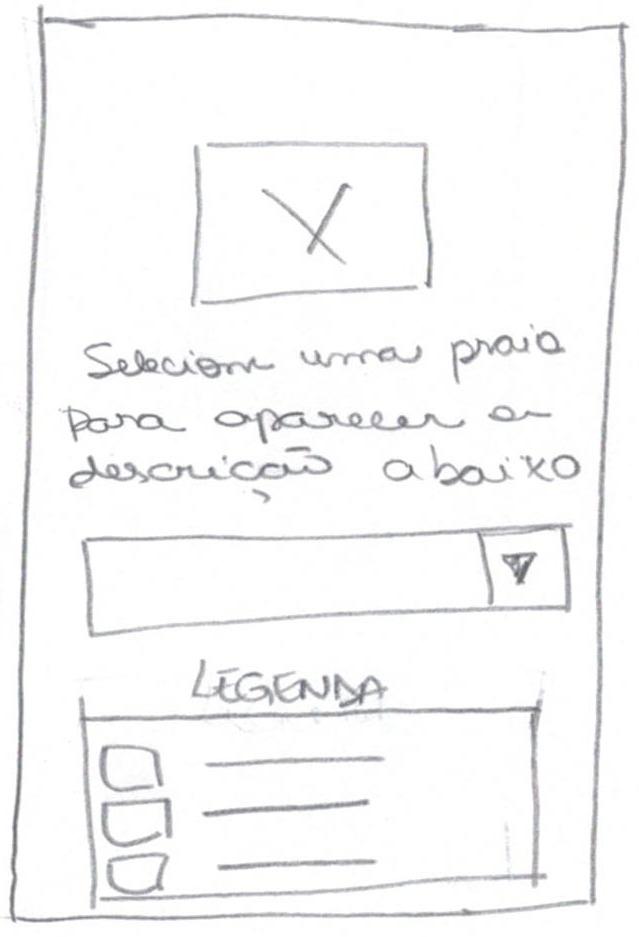 Selecione uma praia
para aparecer a
descrição abaixo
LEGENDA